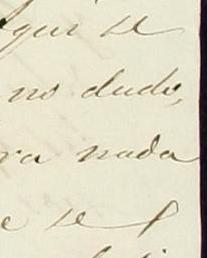 que se
no dudo,
ra nada
e se